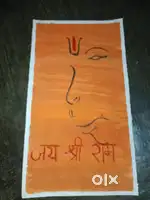 जय श्री राम
OLX